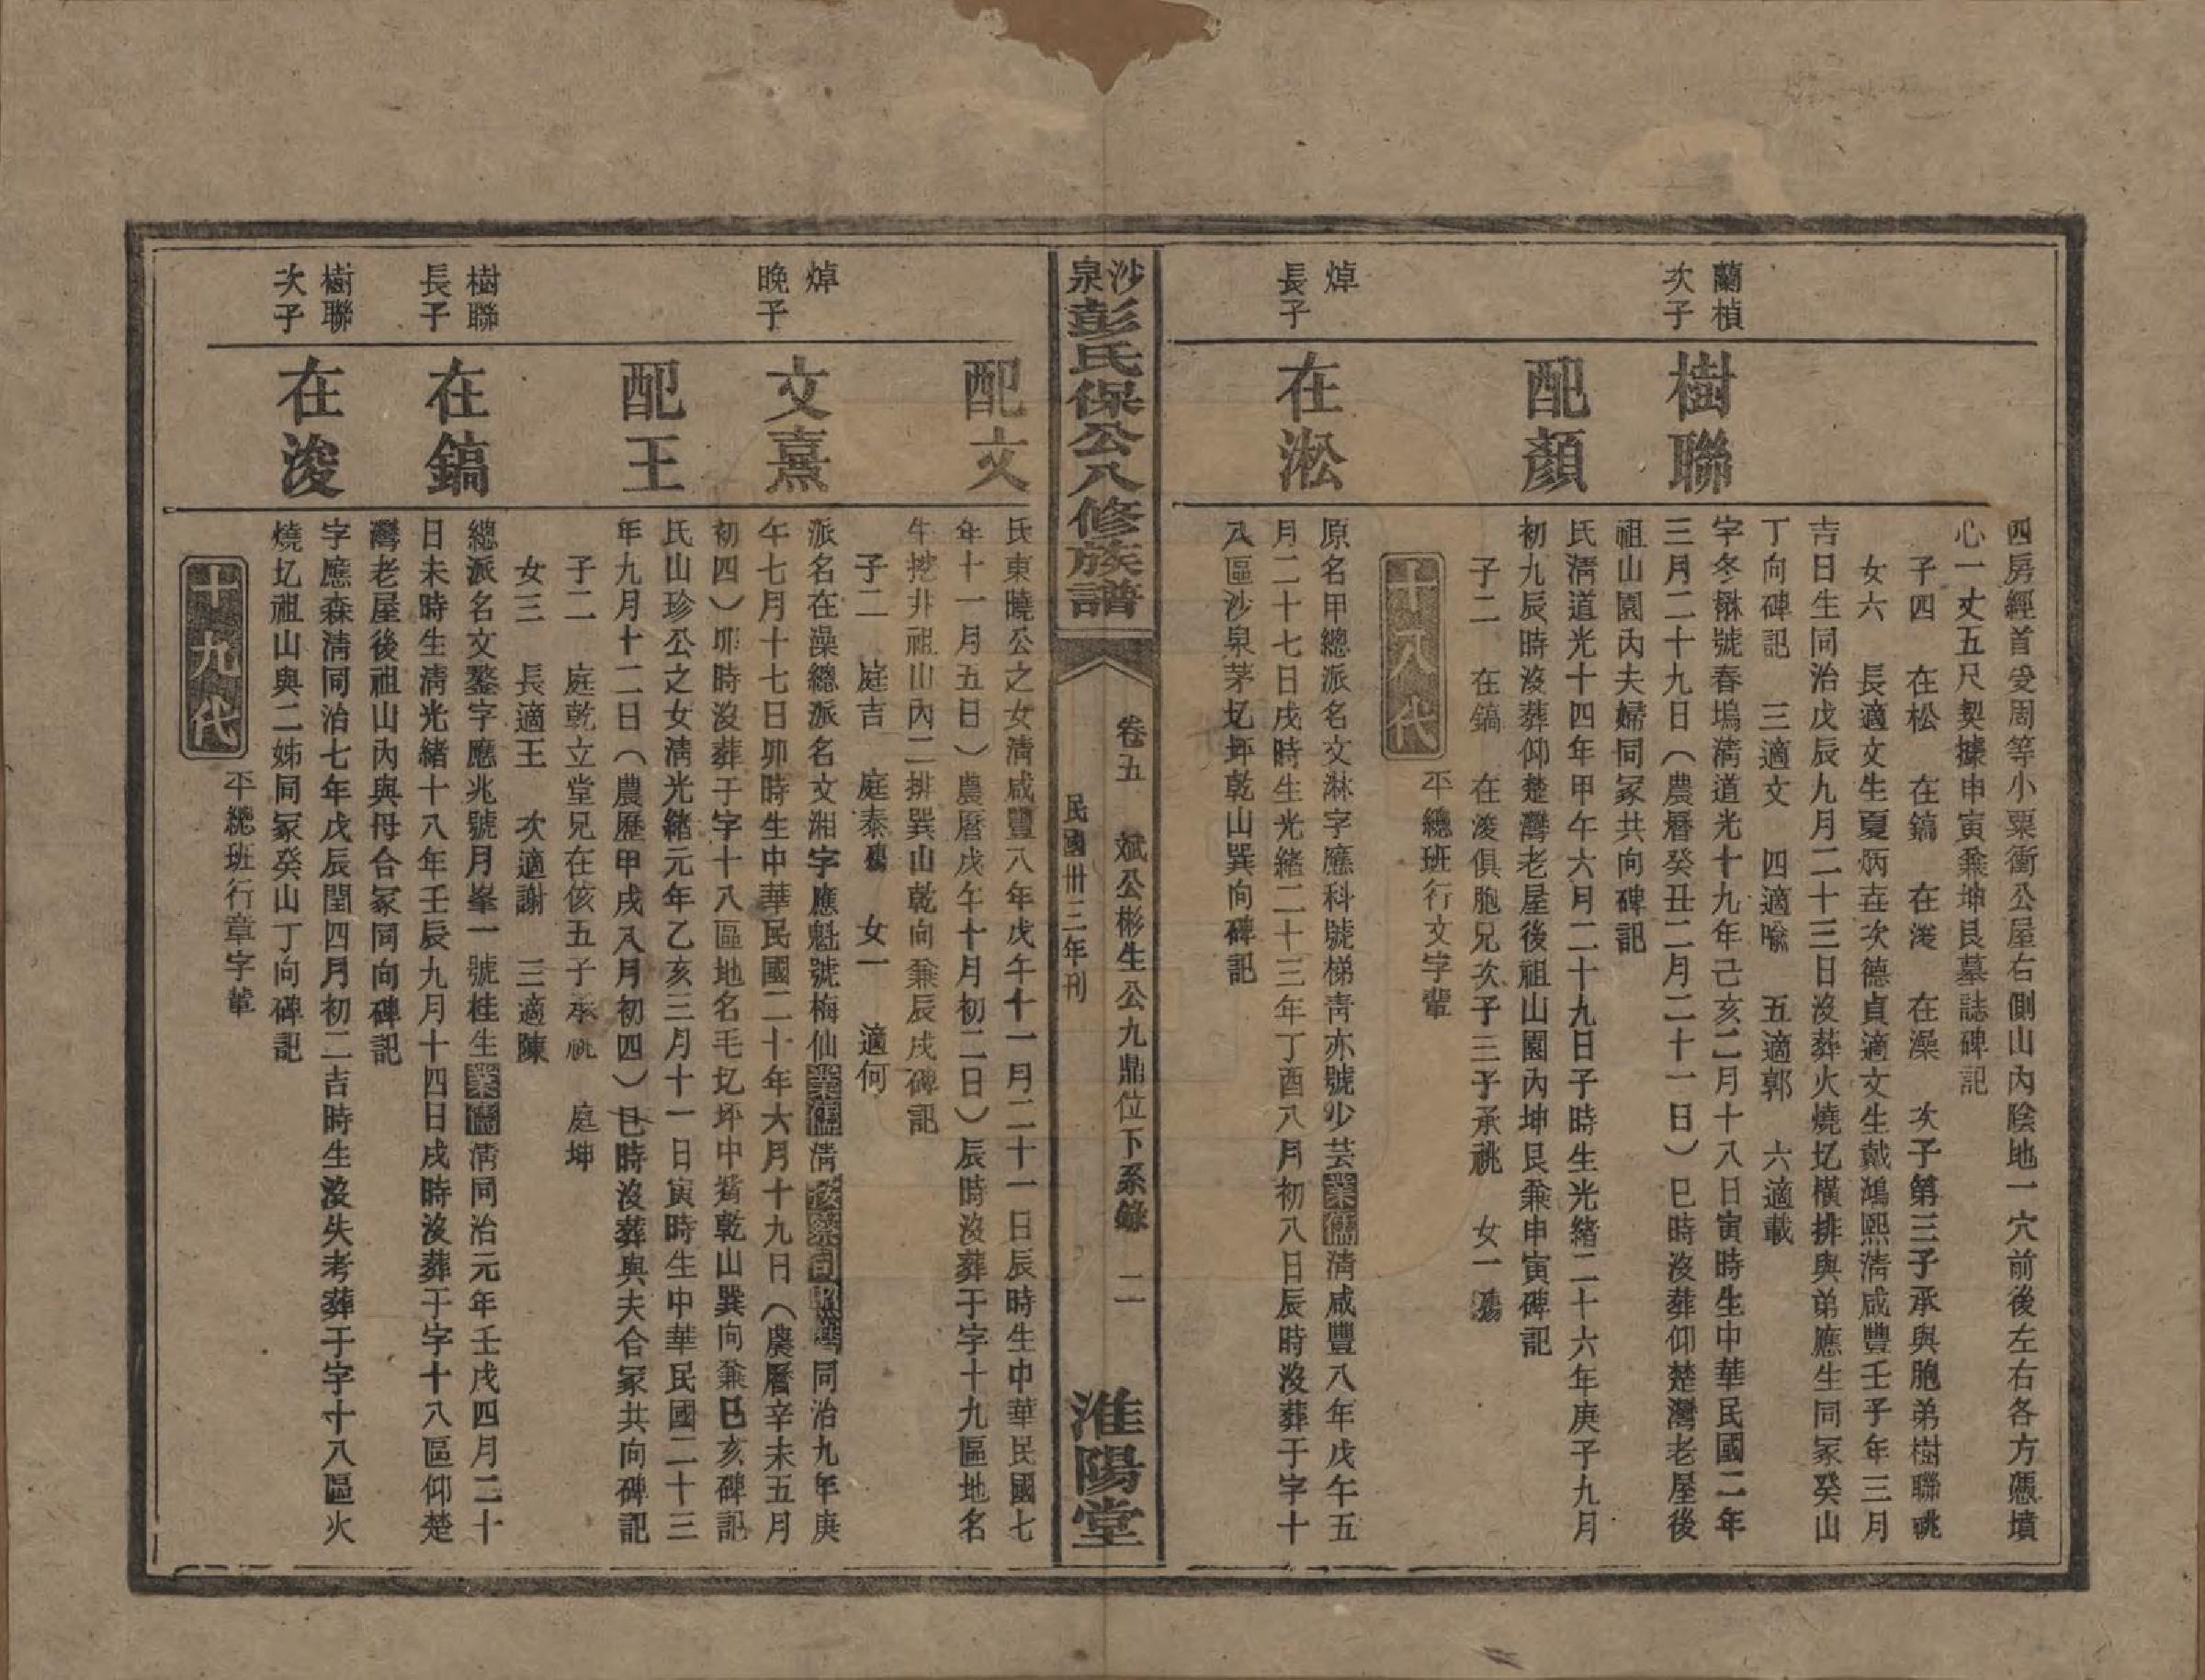 四房經首受周等小粟衝公屋右側山內陰地一穴前後左右各方憑墳
心一丈五尺契據申寅兼坤艮墓誌碑記
子四　在松　在鎬　在浚　在澡　次子第三子承與胞弟樹聯祧
女六　長適文生夏炳垚次德貞適文生戴鴻熙清咸豐壬子年三月
吉日生同治戊辰九月二十三日沒葬火燒圠橫排與弟應生同冢癸山
丁向碑記　三適文　四適喻　五適郭　六適載
蘭楨
次子
樹聯
字冬楙號春塢清道光十九年己亥二月十八日寅時生中華民國二年
三月二十九日（農曆癸丑二月二十一日）巳時沒葬仰楚灣老屋後
祖山園內夫婦同冢共向碑記
配顏
氏清道光十四年甲午六月二十九日子時生光緒二十六年庚子九月
初九辰時沒葬仰楚灣老屋後祖山園內坤艮兼申寅碑記
子二　在鎬　在浚俱胞兄次子三子承祧　女一殤
平總班行文字輩
十八代
焯
長子
在淞
原名甲總派名文淋字應科號梯青亦號少芸業儒清咸豐八年戊午五
月二十七日戌時生光緒二十三年丁酉八月初八日辰時沒葬于字十
八區沙泉茅圠坪乾山巽向碑記
沙泉彭氏保公八修族譜
卷五　斌公彬生公九鼎位下系錄　二
民國卅三年刊
淮陽堂
配文
氏東曉公之女清咸豐八年戊午十一月二十一日辰時生中華民國七
年十一月五日）農曆戊午十月初二日）辰時沒葬于字十九區地名
牛挖井祖山內二排巽山乾向兼辰戌碑記
子二　庭吉　庭泰殤　女一　適何
焯
晚子
文熹
派名在澡總派名文湘字應魁號梅仙業儒清同治九年庚
午七月十七日卯時生中華民國二十年六月十九日（農曆辛未五月
初四）卯時沒葬于字十八區地名毛圠坪中嘴乾山巽向兼巳亥碑記
配王
氏山珍公之女清光緒元年乙亥三月十一日寅時生中華民國二十三
年九月十二日（農歷甲戌八月初四）巳時沒葬與夫合冢共向碑記
子二　庭乾立堂兄在侅五子承祧　庭坤
女三　長適王　次適謝　三適陳
樹聯
長子
在鎬
總派名文鏊字應兆號月峯一號桂生業儒清同治元年壬戌四月二十
日未時生清光緒十八年壬辰九月十四日戌時沒葬于字十八區仰楚
灣老屋後祖山內與母合冢同向碑記
樹聯
次子
在浚
字應森清同治七年戊辰閏四月初二吉時生沒失考葬于字十八區火
燒圠祖山與二姊同冢癸山丁向碑記
平總班行章字輩
十九代